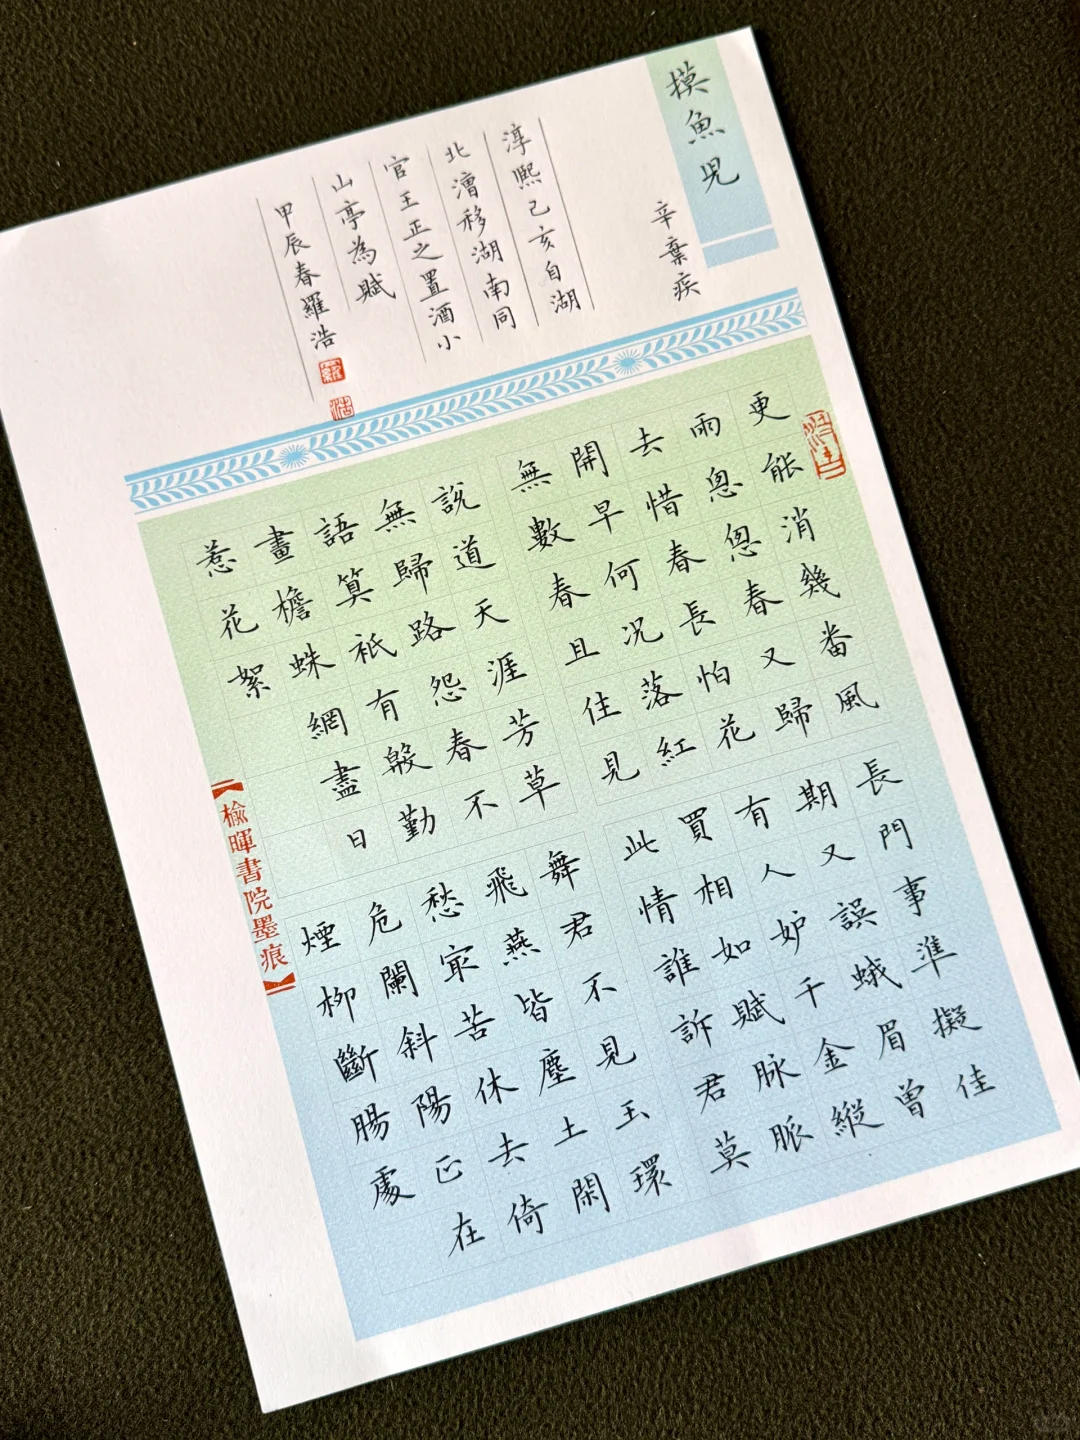 摸魚児
辛棄疾
淳熙己亥自湖
北漕移湖南同
官王正之置酒小
山亭為賦
甲辰春羅浩
羅
浩
更能消幾番風
雨悤悤春又歸
去惜春長怕花
開早何况落紅
無數春且住見
說道天涯芳草
無歸路怨春不
語算祇有殷勤
畫檐蛛網盡日
惹花絮
長門事準擬佳
期又誤蛾眉曾
有人妒千金縱
買相如賦脉脈
此情誰訴君莫
舞君不見玉環
飛燕皆塵土閑
愁冣苦休去倚
危闌斜陽正在
煙柳斷腸處
【榆暉書院墨痕】